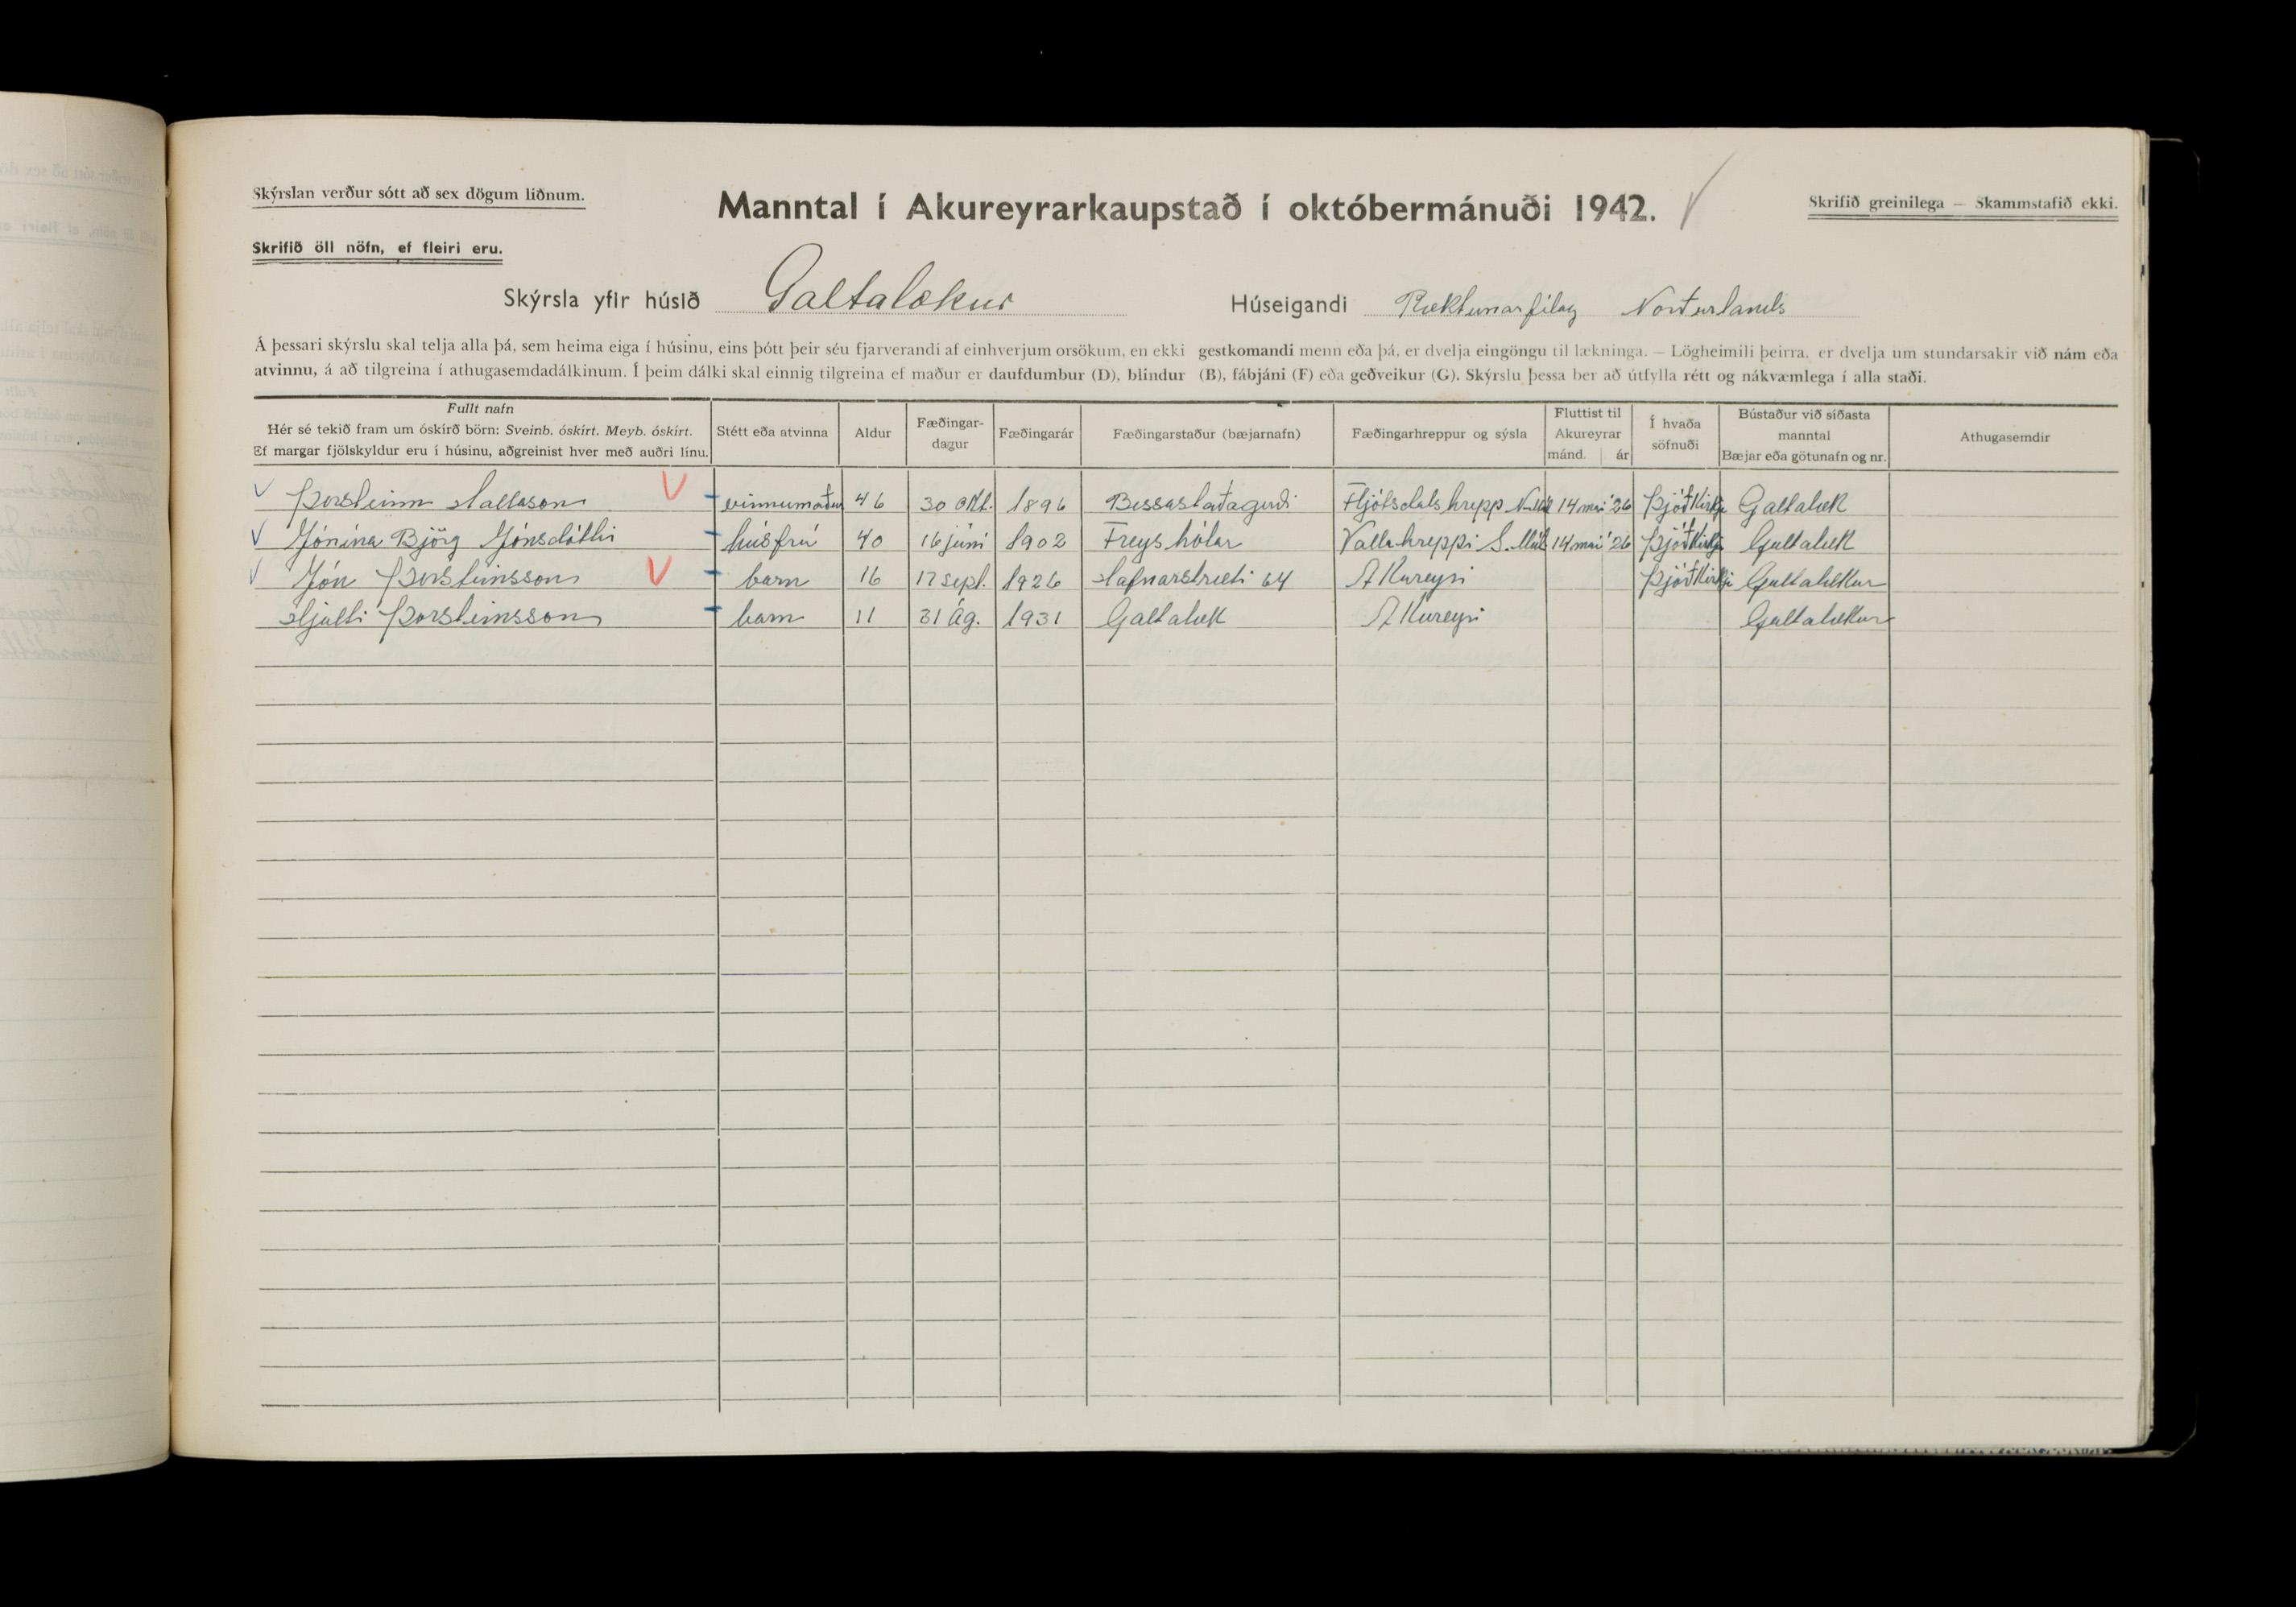 Skýrslan verður sótt að sex dögum liðnum.
Manntal í Akureyrarkaupstað í októbermánuði 1942.
Skrifið greinilega — Skammstafið ekki.
Skrifið öll nöfn, ef fleiri eru.
Skýrsla yfir húsið Galtalækur Húseigandi Ræktunarfélag Norðurlands
Á þessari skýrslu skal telja alla þá, sem heima eiga í húsinu, eins þótt þeir séu fjarverandi af einhverjum orsökum, en ekki gestkomandi menn eða þá, er dvelja eingöngu til lækninga. — Lögheimili þeirra, er dvelja um stundarsakir við nám eða
atvinnu, á að tilgreina í athugasemdadálkinum. Í þeim dálki skal einnig tilgreina ef maður er daufdumbur (D), blindur (B), fábjáni (F) eða geðveikur (G). Skýrslu þessa ber að útfylla rétt og nákvæmlega í alla staði.
Fullt nafn
Hér sé tekið fram um óskírð börn: Sveinb. óskírt. Meyb. óskírt.
Ef margar fjölskyldur eru í húsinu, aðgreinist hver með auðri línu.
Stétt eða atvinna
Aldur
Fæðingar-
dagur
Fæðingarár
Fæðingarstaður (bæjarnafn)
Fæðingarhreppur og sýsla
Fluttist til
Akureyrar
mánd. ár
Í hvaða
söfnuði
Bústaður við síðasta
manntal
Bæjar eða götunafn og nr.
Athugasemdir
Þorsteinn Hallason vinnumaður 46 30 okt. 1896 Bessastaðagerði Fljótsdalshrepp N. 14 maí '26 Þjóðkirkju Galtalæk
Jónína Björg Jónsdóttir húsfrú 40 16 júní 1902 Freyshólar Vallahreppi S. Múl 14 maí '26 Þjóðkirkju Galtalæk
Jón Þorsteinsson barn 16 17 sept. 1926 Hafnarstræti 64 Akureyri Þjóðkirkju Galtalækur
Hjalti Þorsteinsson barn 11 31 ág. 1931 Galtalæk Akureyri Galtalækur